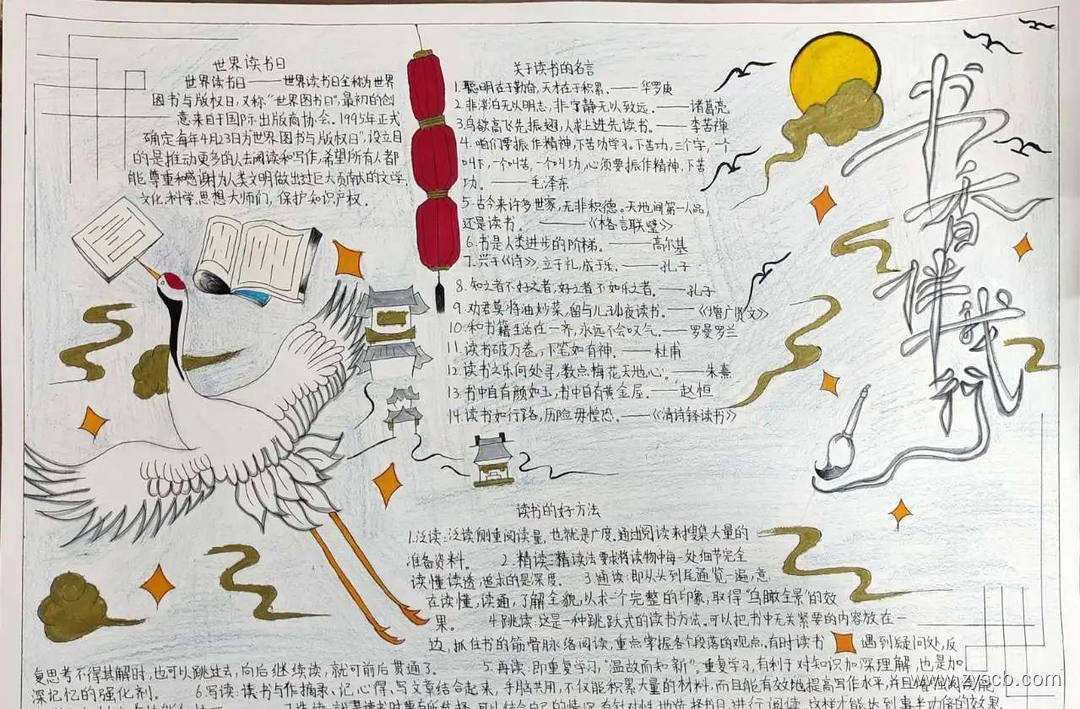 世界读书日
世界读书日——世界读书日全称为世界
图书与版权日,又称“世界图书日”,最初的创
意来自于国际出版商协会。1995年正式
确定每年4月23日为“世界图书与版权日”,设立目
的是推动更多的人去阅读和写作,希望所有人都
能尊重和感谢为人类文明做出过巨大贡献的文学,
文化,科学,思想大师们,保护知识产权。
关于读书的名言
1.聪明在于勤奋,天才在于积累。——华罗庚
2.非淡泊无以明志,非宁静无以致远。——诸葛亮
3.鸟欲高飞先振翅,人求上进先读书。——李苦禅
4.咱们要振作精神,下苦功学习。下苦功,三个字,一个
叫下,一个叫苦,一个叫功,心须要振作精神,下苦
功。——毛泽东
5.古今来许多世家,无非积德。天地间第一人品,
还是读书。——《格言联璧》
6.书是人类进步的阶梯。——高尔基
7.兴于《诗》,立于礼,成于乐。——孔子
8.知之者不好之者,好之者不如乐之者。——孔子
9.劝君莫将油炒菜,留与儿孙夜读书。——《增广贤文》
10.和书籍生活在一齐,永远不会叹气。——罗曼罗兰
11.读书破万卷,下笔如有神。——杜甫
12.读书之乐何处寻,数点梅花天地心。——朱熹
13.书中自有颜如玉,书中自有黄金屋。——赵恒
14.读书如行路,历险毋惶恐。——《清诗铎读书》
书香伴我行
读书的好方法
1.泛读:泛读侧重阅读量,也就是广度,通过阅读来搜集大量的
准备资料。 2.精读:精读法要求将读物中每一处细节完全
读懂读透,追求的是深度。 3.通读:即从头到尾通览一遍,意
在读懂,读通,了解全貌,以求一个完整的印象,取得“鸟瞰全景”的效
果。 4.跳读:这是一种跳跃式的读书方法。可以把书中无关紧要的内容放在一
边,抓住书的筋骨脉络阅读,重点掌握各个段落的观点。有时读书 遇到疑问处,反
复思考不得其解时,也可以跳过去,向后继续读,就可前后贯通了。 5.再读:即重复学习,“温故而知新”,重复学习,有利于对知识加深理解,也是加
深记忆的强化剂。 6.写读:读书与作摘录、记心得、写文章结合起来,手脑共用,不仅能积累大量的材料,而且能有效地提高写作水平,并且
选读:就是读书时要有所选择,可以结合自己的情况,有针对性地选择书目,进行阅读,这样才能达到事半功倍的效果。
www.zyscb.com